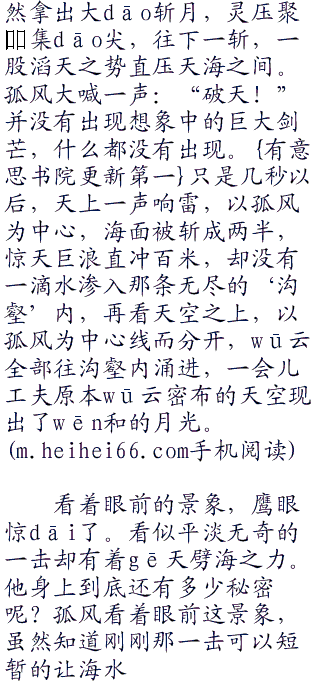 然拿出大dāo斩月，灵压聚
集dāo尖，往下一斩，一
股滔天之势直压天海之间。
孤风大喊一声：“破天！”
并没有出现想象中的巨大剑
芒，什么都没有出现。{有意
思书院更新第一}只是几秒以
后，天上一声响雷，以孤风
为中心，海面被斩成两半，
惊天巨浪直冲百米，却没有
一滴水渗入那条无尽的‘沟
壑’内，再看天空之上，以
孤风为中心线而分开，wū云
全部往沟壑内涌进，一会儿
工夫原本wū云密布的天空现
出了wēn和的月光。
(m.heihei66.com手机阅读)
看着眼前的景象，鹰眼
惊dāi了。看似平淡无奇的
一击却有着gē天劈海之力。
他身上到底还有多少秘密
呢？孤风看着眼前这景象，
虽然知道刚刚那一击可以短
暂的让海水